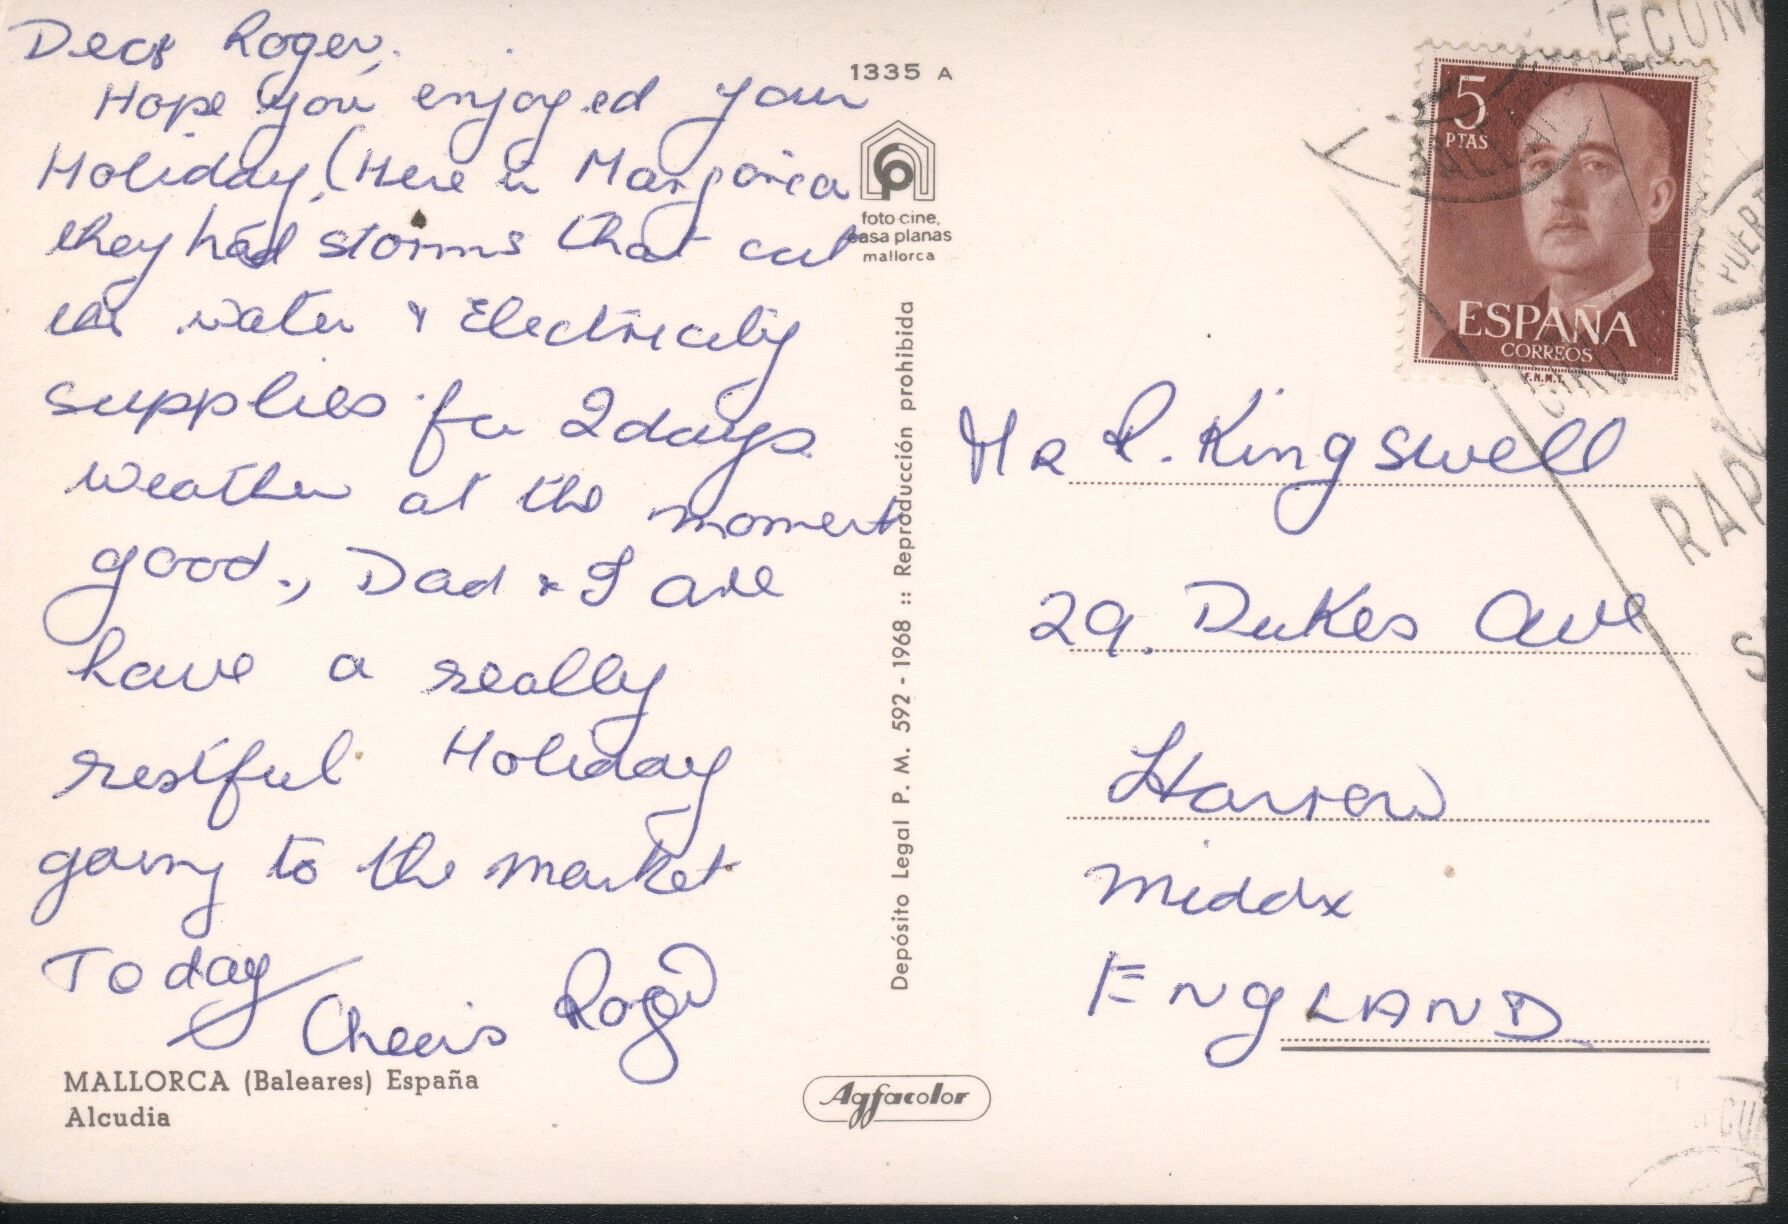 Dear Roger,
Hope you enjoyed your
Holiday, (Here in Marjorica
they had storms that cut
the water & Electricity
supplies for 2 days.
weather at the moment
good., Dad & I are
have a really
restful Holiday
going to the market
Today
Cheeris Roger
MALLORCA (Baleares) España
Alcudia
1335 A
foto cine,
casa planas
mallorca
Depósito Legal P. M. 592 - 1968 :: Reproducción prohibida
Agfacolor
5
PTAS
ESPAÑA
CORREOS
F.N.M.T.
MR R. Kingswell
29. Dukes Ave
Harrow
Middx
ENgLAND